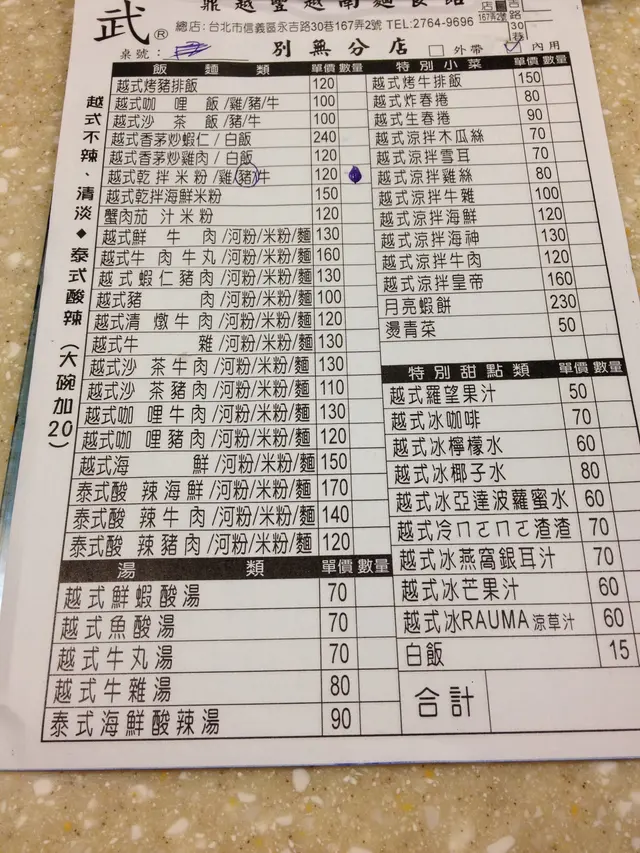 武®
鼎越豐越南麵食館
總店:台北市信義區永吉路30巷167弄2號 TEL:2764-9696
桌號: 別無分店 □外帶 ☑內用
越式不辣、清淡◆泰式酸辣(大碗加20)
飯麵類 單價 數量
越式烤豬排飯 120
越式咖哩飯/雞/豬/牛 100
越式沙茶飯/豬/牛 100
越式香茅炒蝦仁/白飯 240
越式香茅炒雞肉/白飯 120
越式乾拌米粉/雞/豬/牛 120
越式乾拌海鮮米粉 150
蟹肉茄汁米粉 120
越式鮮牛肉/河粉/米粉/麵 130
越式牛肉牛丸/河粉/米粉/麵 160
越式蝦仁豬肉/河粉/米粉/麵 130
越式豬肉/河粉/米粉/麵 100
越式清燉牛肉/河粉/米粉/麵 120
越式牛雜/河粉/米粉/麵 130
越式沙茶牛肉/河粉/米粉/麵 130
越式沙茶豬肉/河粉/米粉/麵 110
越式咖哩牛肉/河粉/米粉/麵 130
越式咖哩豬肉/河粉/米粉/麵 120
越式海鮮/河粉/米粉/麵 150
泰式酸辣海鮮/河粉/米粉/麵 170
泰式酸辣牛肉/河粉/米粉/麵 140
泰式酸辣豬肉/河粉/米粉/麵 120
湯類 單價 數量
越式鮮蝦酸湯 70
越式魚酸湯 70
越式牛丸湯 70
越式牛雜湯 80
泰式海鮮酸辣湯 90
特別小菜 單價 數量
越式烤牛排飯 150
越式炸春捲 80
越式生春捲 90
越式涼拌木瓜絲 70
越式涼拌雪耳 70
越式涼拌雞絲 80
越式涼拌牛雜 100
越式涼拌海鮮 120
越式涼拌海神 130
越式涼拌牛肉 120
越式涼拌皇帝 160
月亮蝦餅 230
燙青菜 50
特別甜點類 單價 數量
越式羅望果汁 50
越式冰咖啡 70
越式冰檸檬水 60
越式冰椰子水 80
越式冰亞達波蘿蜜水 60
越式冷ㄇㄛㄇㄛ渣渣 70
越式冰燕窩銀耳汁 70
越式冰芒果汁 60
越式冰RAUMA涼草汁 60
白飯 15
合計